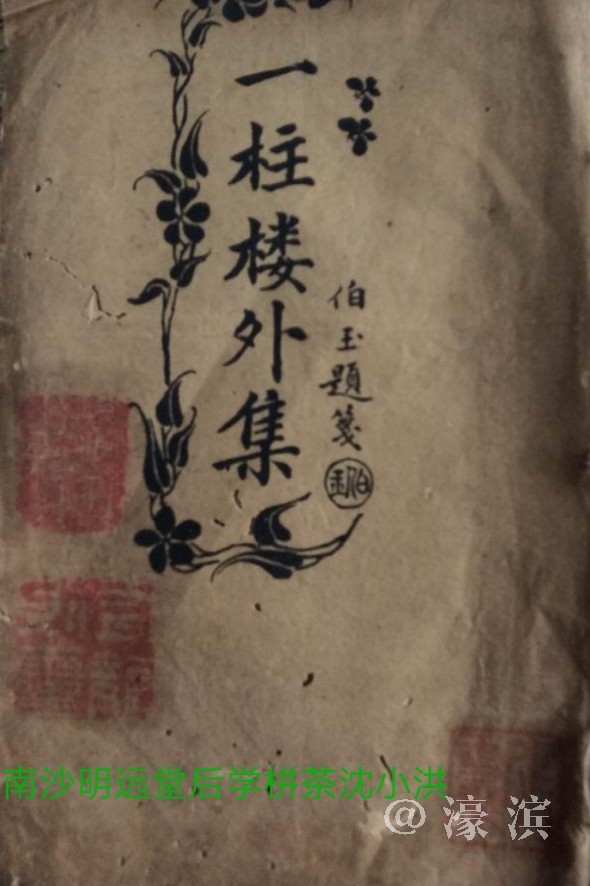 一柱楼外集
伯玉題箋
伯玉
南沙明远堂后学栟茶沈小洪
@濠滨